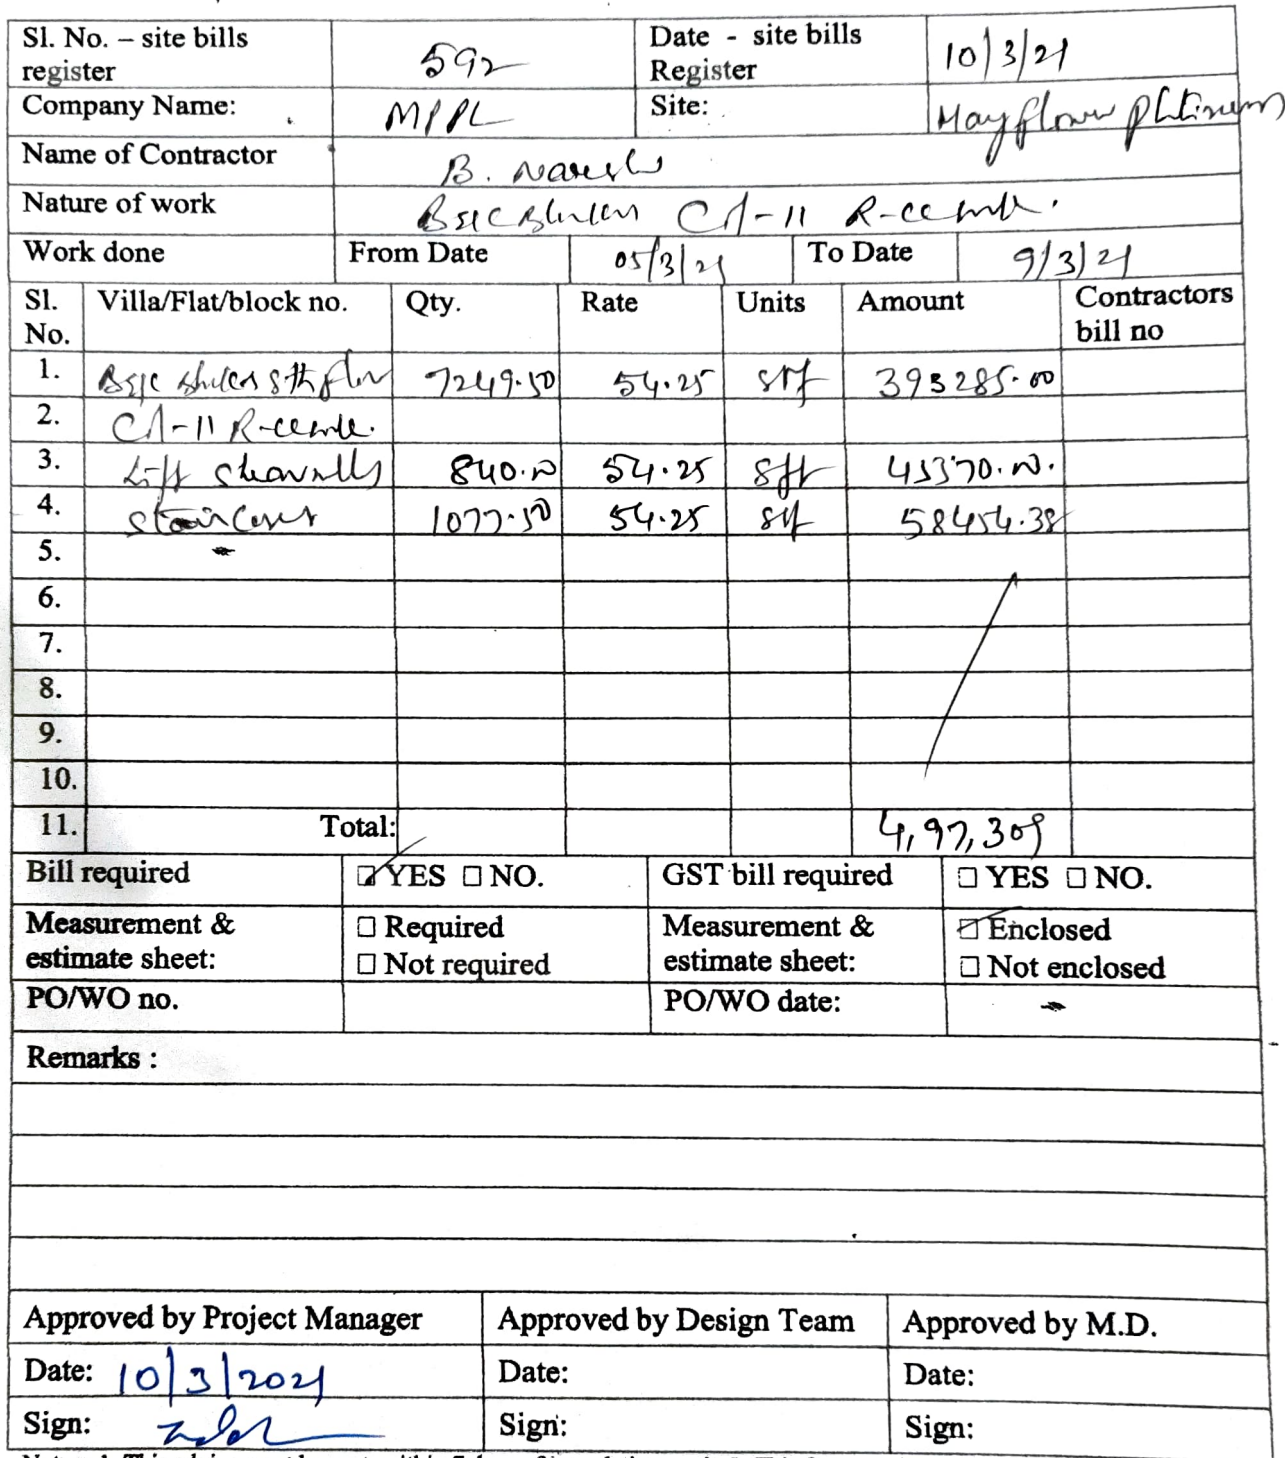 Sl. No. – site bills register 592 Date - site bills Register 10/3/21
Company Name: MPPL Site: Mayflower Platinum
Name of Contractor B. Naresh
Nature of work R-cemnt.
Work done From Date 05/3/21 To Date 9/3/21
Sl. No. Villa/Flat/block no. Qty. Rate Units Amount Contractors bill no
1. 7249.50 54.25 sft 393285.00
2.
3. Lift shearwalls 840.00 54.25 sft 45570.00.
4. staircases 1077.50 54.25 sft 58454.38
5.
6.
7.
8.
9.
10.
11. Total: 4,97,309
Bill required ☑ YES □ NO. GST bill required □ YES □ NO.
Measurement & estimate sheet: □ Required □ Not required Measurement & estimate sheet: ☑ Enclosed □ Not enclosed
PO/WO no. PO/WO date:
Remarks :
Approved by Project Manager Approved by Design Team Approved by M.D.
Date: 10/3/2021 Date: Date:
Sign: Sign: Sign: